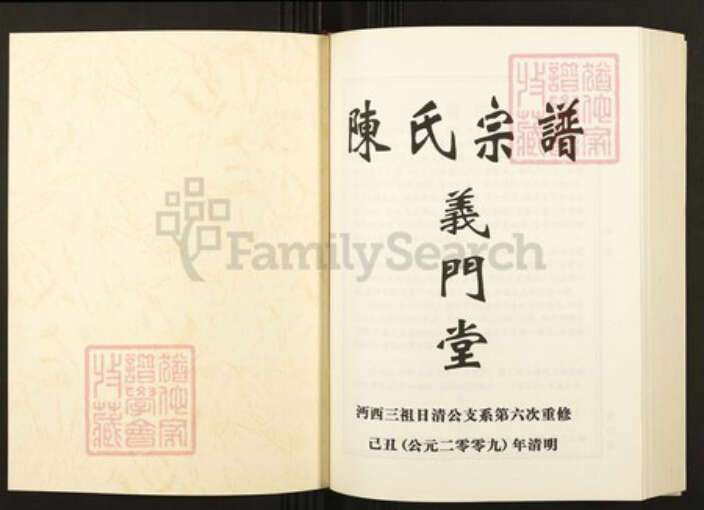 陳氏宗譜
義門堂
沔西三祖日清公支系第六次重修
己丑(公元二零零九)年清明
FamilySearch